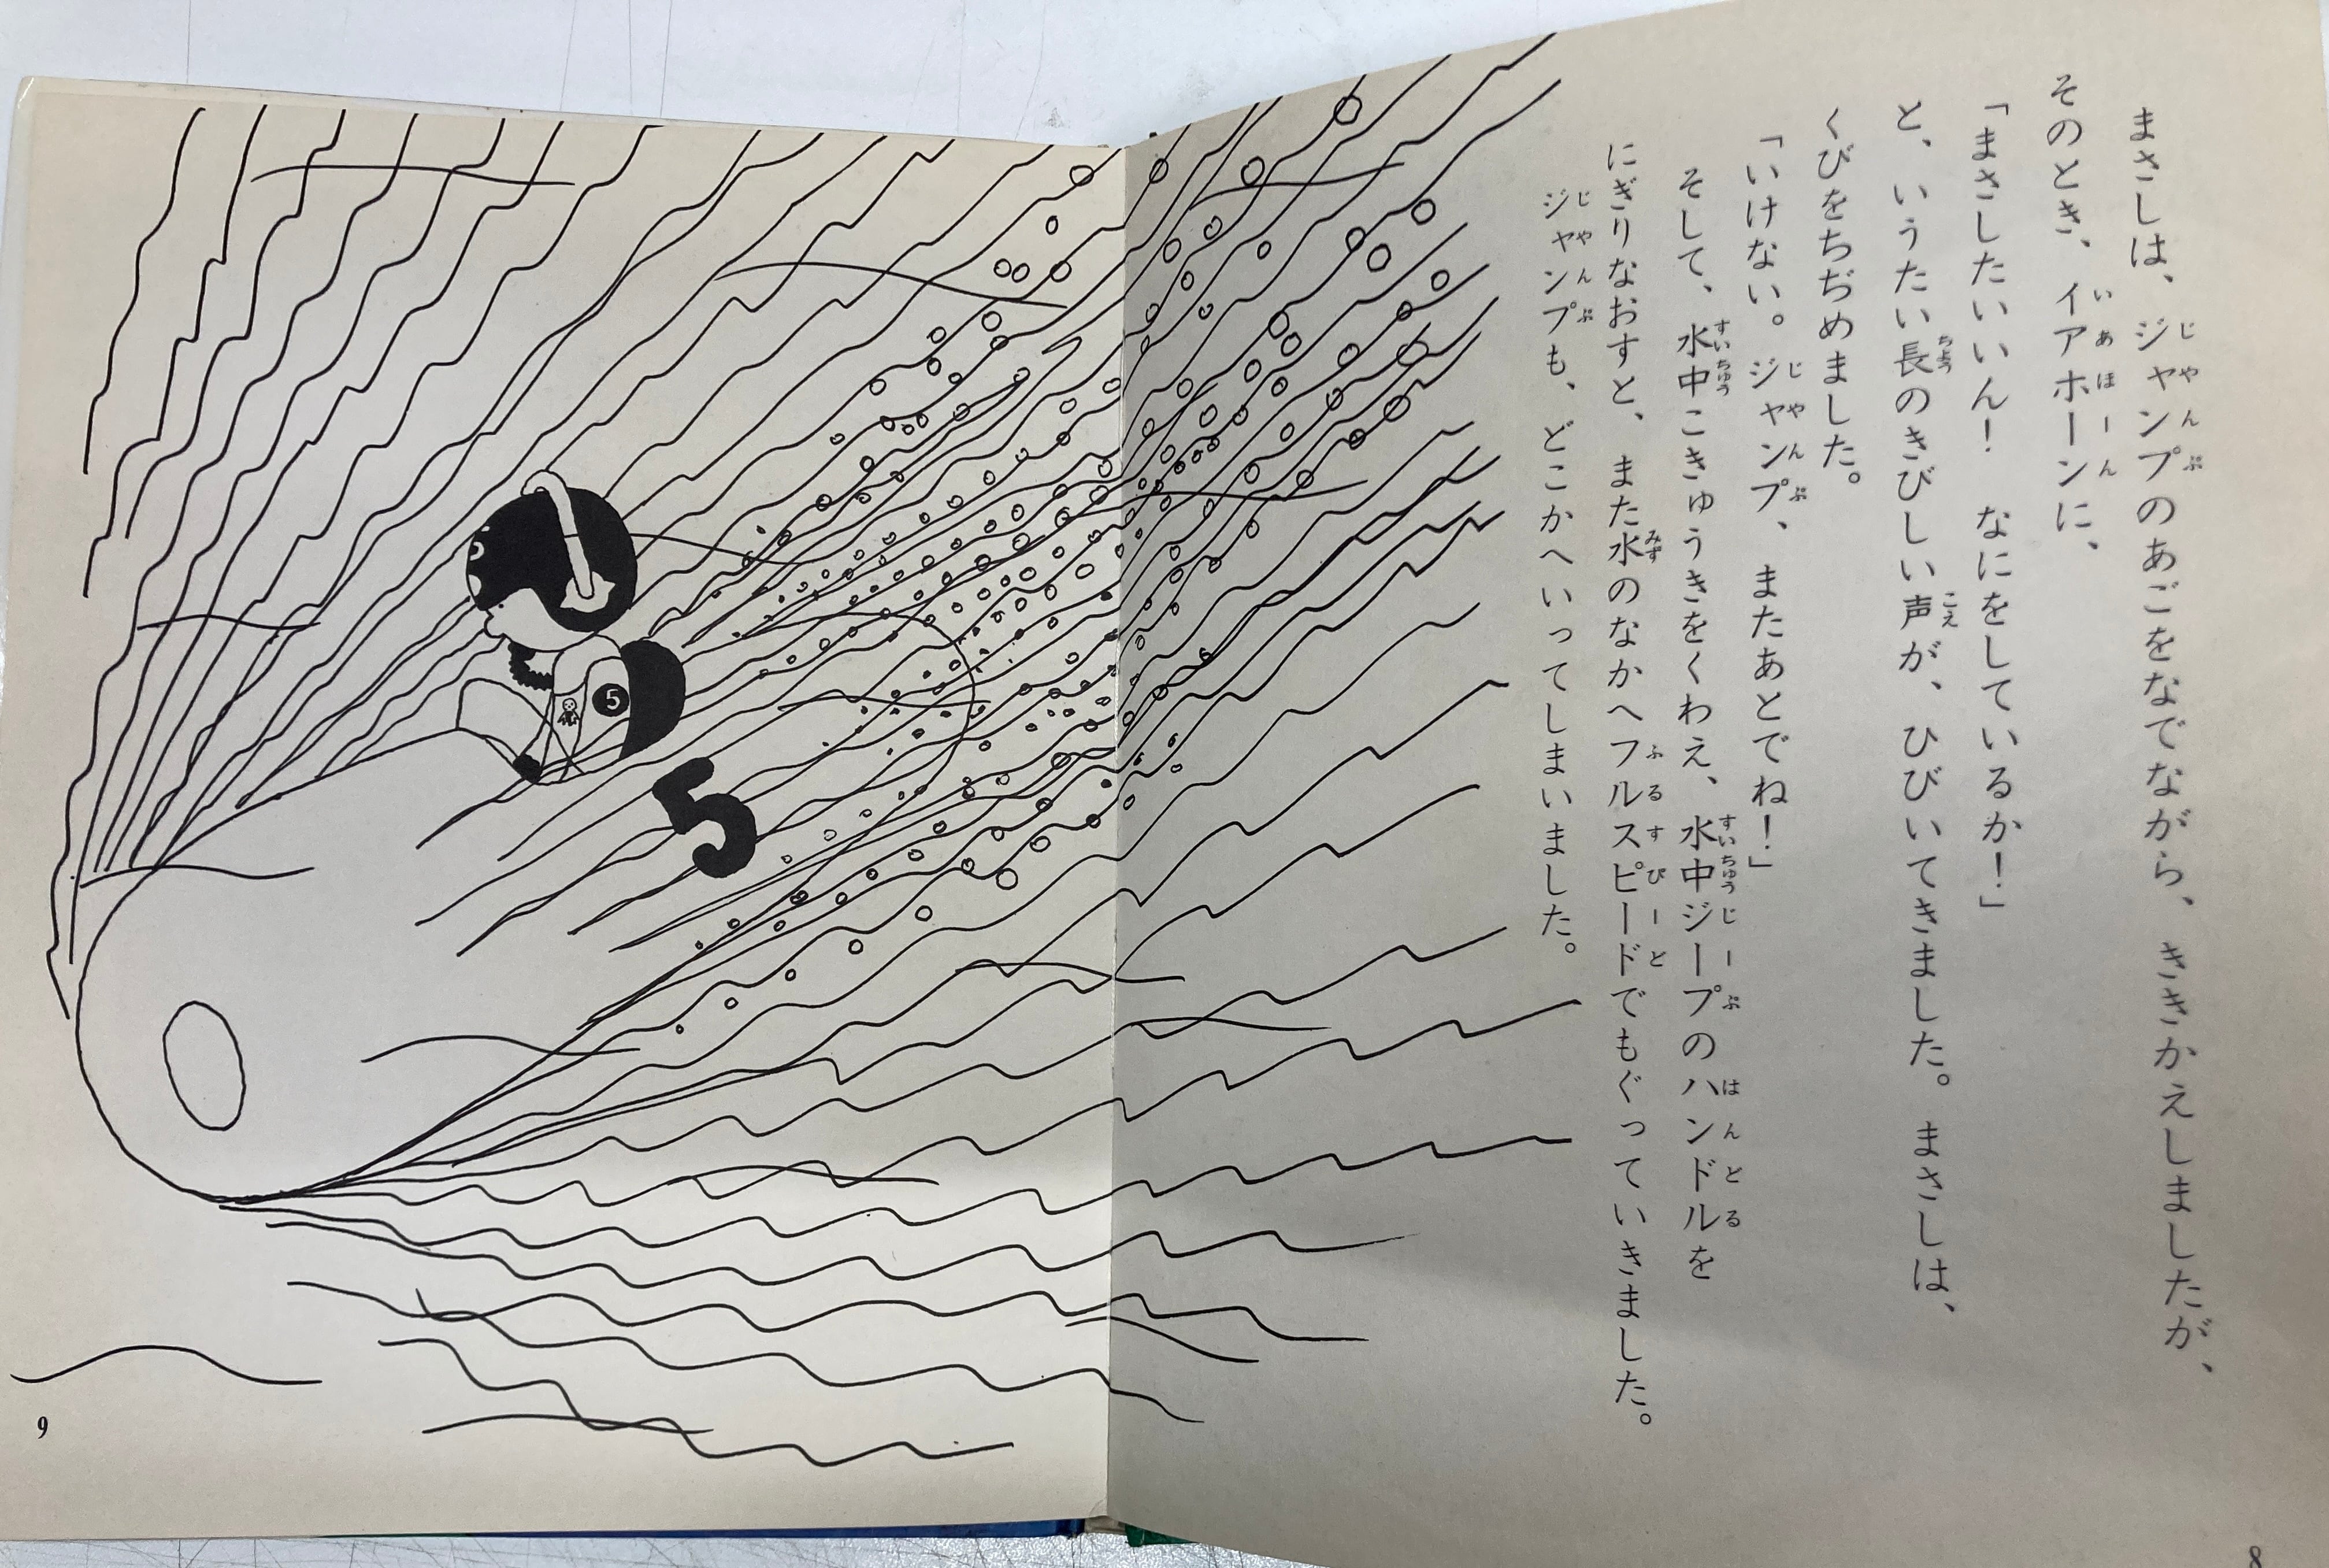 まさしは、ジャンプのあごをなでながら、ききかえしましたが、
そのとき、イアホーンに、
「まさしたいいん！　なにをしているか！」
と、いうたい長のきびしい声が、ひびいてきました。まさしは、
くびをちぢめました。
「いけない。ジャンプ、またあとでね！」
そして、水中こきゅうきをくわえ、水中ジープのハンドルを
にぎりなおすと、また水のなかへフルスピードでもぐっていきました。
ジャンプも、どこかへいってしまいました。
8
5
5
9